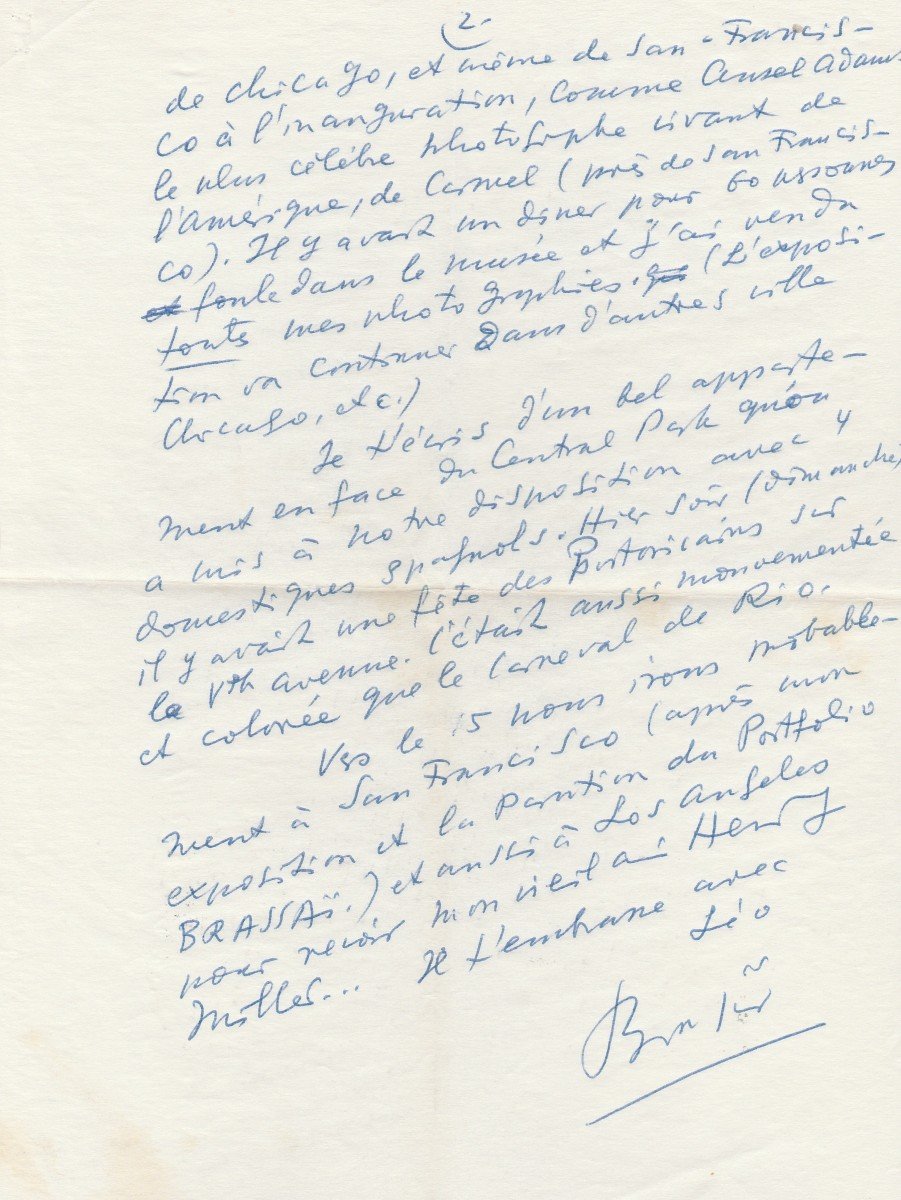 2.
de Chicago, et même de San-Francis-
co à l'inauguration, comme Ansel Adams
le plus célèbre photographe vivant de
l'Amérique, de Carmel (près de San Francis-
co). Il y avait un dîner pour 60 personnes
et foule dans le musée et j'ai vendu
touts mes photographies. (L'exposi-
tion va continuer dans d'autres ville
Chicago, etc.)
Je t'écris d'un bel apparte-
ment en face du Central Park qu'on
a mis à notre disposition avec 4
domestiques espagnols. Hier soir (dimanche)
il y avait une fête des Portoricains sur
la Vth avenue. C'était aussi mouvementée
et colorée que le Carneval de Rio.
Vers le 15 nous irons probable-
ment à San Francisco (après mon
exposition et la Parution du Portfolio
BRASSAÏ.) et aussi à Los Angeles
pour revoir mon vieil ami Henry
Miller... Je t'embrasse avec
Léo
Brassaï